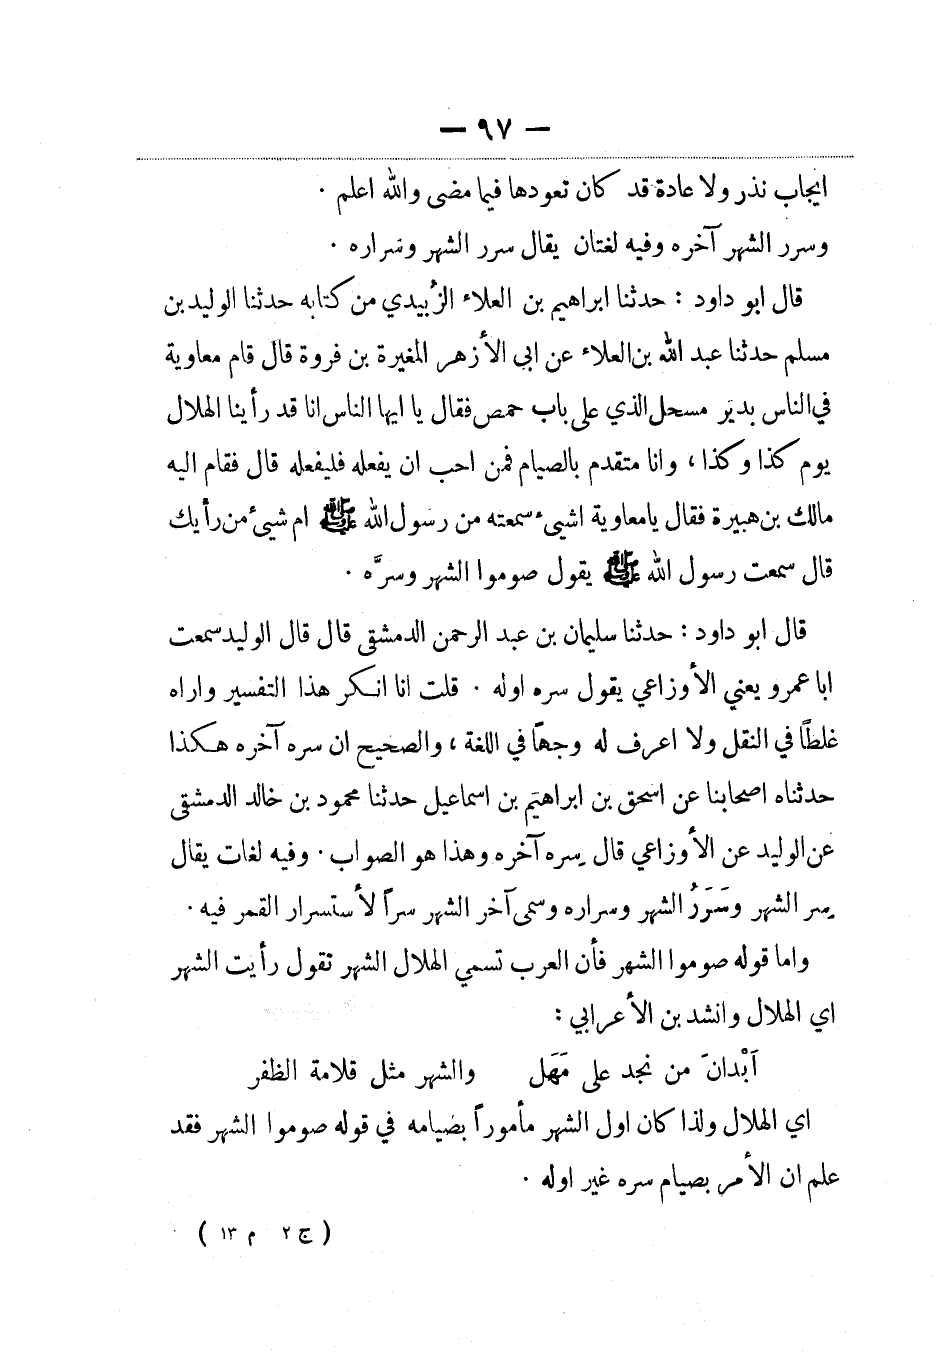 — ٩٧ —
ايجاب نذر ولا عادة قد كان تعودها فيما مضى والله اعلم ·
وسرر الشهر آخره وفيه لغتان يقال سرر الشهر وسراره ·
قال ابو داود : حدثنا ابراهيم بن العلاء الزُبيدي من كتابه حدثنا الوليد بن
مسلم حدثنا عبد الله بن العلاء عن ابى الأزهر المغيرة بن فروة قال قام معاوية
في الناس بدير مسحل الذي على باب حمص فقال يا ايها الناس انا قد رأينا الهلال
يوم كذا وكذا، وانا متقدم بالصيام فمن احب ان يفعله فليفعله قال فقام اليه
مالك بن هبيرة فقال يامعاوية اشيىء سمعته من رسول الله ﷺ ام شيىء من رأيك
قال سمعت رسول الله ﷺ يقول صوموا الشهر وسرَّه ·
قال ابو داود : حدثنا سليمان بن عبد الرحمن الدمشقى قال قال الوليد سمعت
ابا عمرو يعني الأوزاعي يقول سره اوله · قلت انا انكر هذا التفسير واراه
غلطاً في النقل ولا اعرف له وجهاً في اللغة، والصحيح ان سره آخره هكذا
حدثناه اصحابنا عن اسحق بن ابراهيم بن اسماعيل حدثنا محمود بن خالد الدمشقى
عن الوليد عن الأوزاعي قال سره آخره وهذا هو الصواب · وفيه لغات يقال
سر الشهر وسَرَرُ الشهر وسراره وسمى آخر الشهر سراً لأستسرار القمر فيه ·
واما قوله صوموا الشهر فأن العرب تسمي الهلال الشهر تقول رأيت الشهر
اي الهلال وانشد بن الأعرابي :
اَبْدانَ من نجد على مَهَل والشهر مثل قلامة الظفر
اي الهلال ولذا كان اول الشهر مأموراً بصيامه في قوله صوموا الشهر فقد
علم ان الأمر بصيام سره غير اوله ·
( ج ٢ م ١٣ )